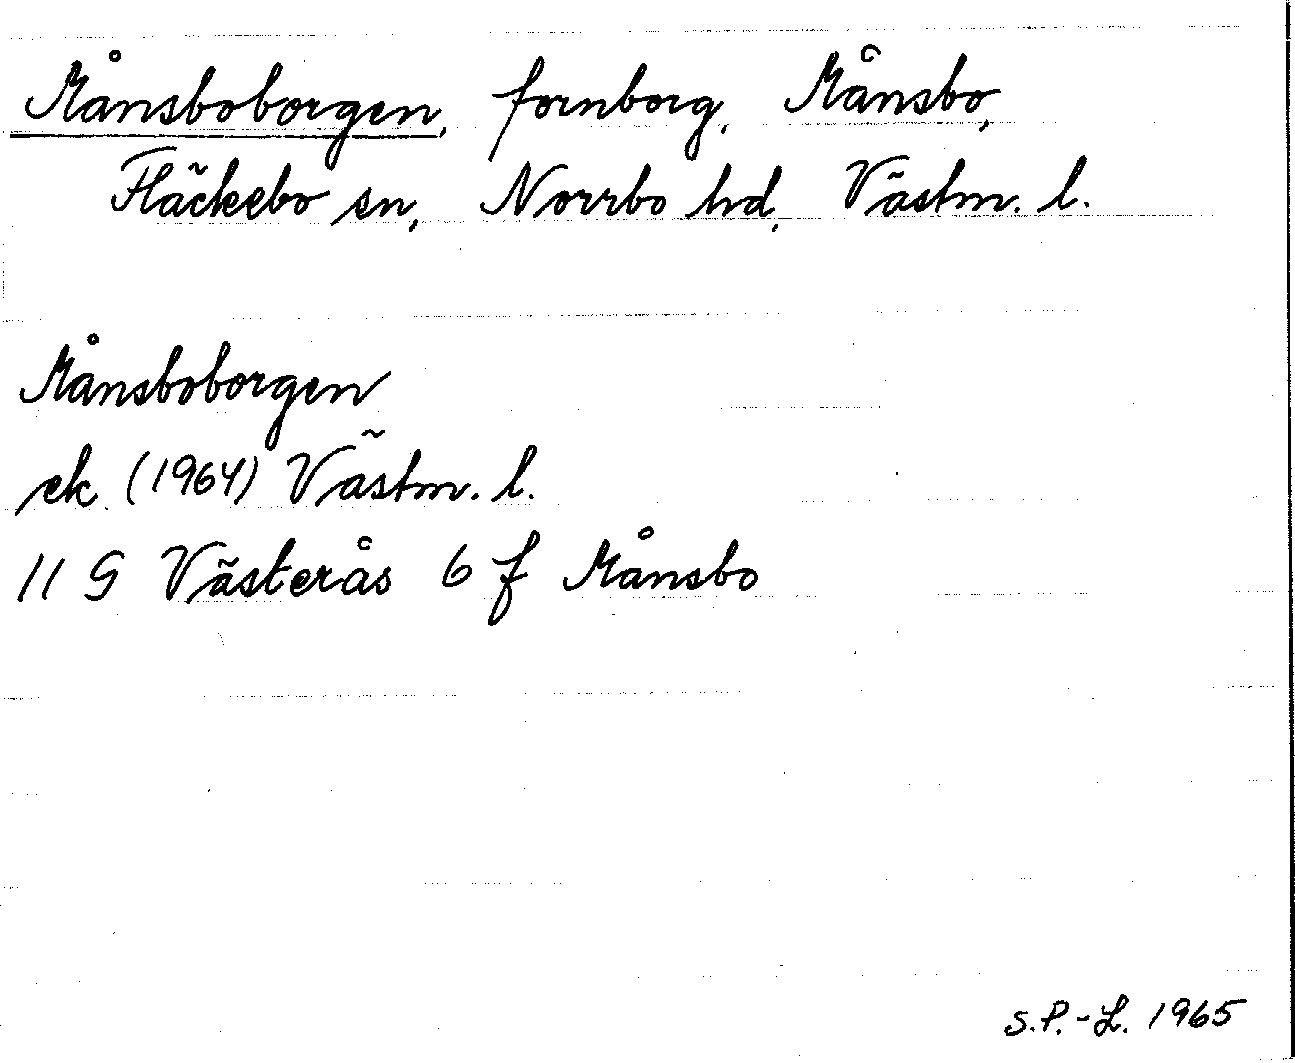 Månsboborgen, fornborg, Månsbo,
Fläckebo sn, Norrbo hd, Västm. l.
Månsboborgen
ek. (1964) Västm. l.
11 G Västerås 6 f Månsbo
S.P.-L. 1965